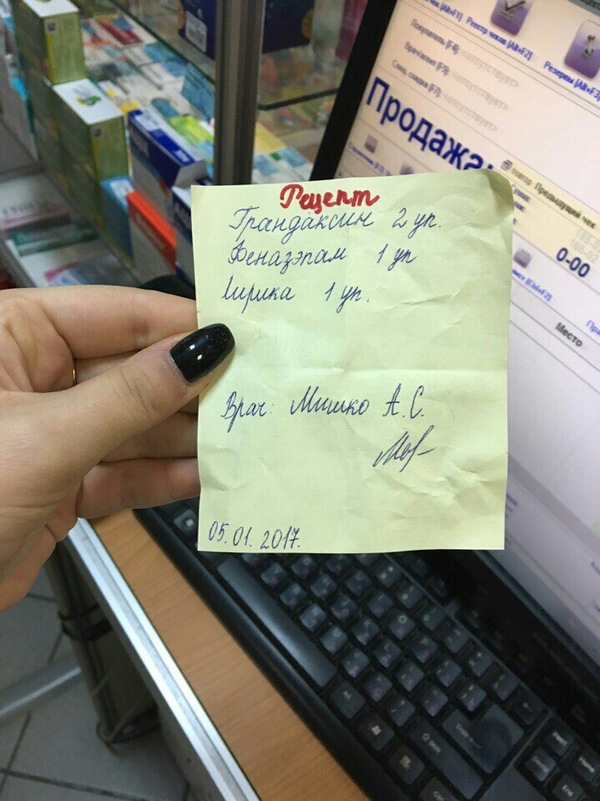 Рецепт
Грандаксин 2 уп.
Феназэпам 1 уп
Лирика 1 уп.
Врач: Мишко А.С.
05.01.2017.
Покупатель (F4): <отсутствует>
Реестр чеков [Alt+F2]
Резервы [Alt+F3]
Врач/клин (F5): <отсутствует>
Спец. скидка (F7): <отсутствует>
Продажа
Предыдущий чек
0-00
Место